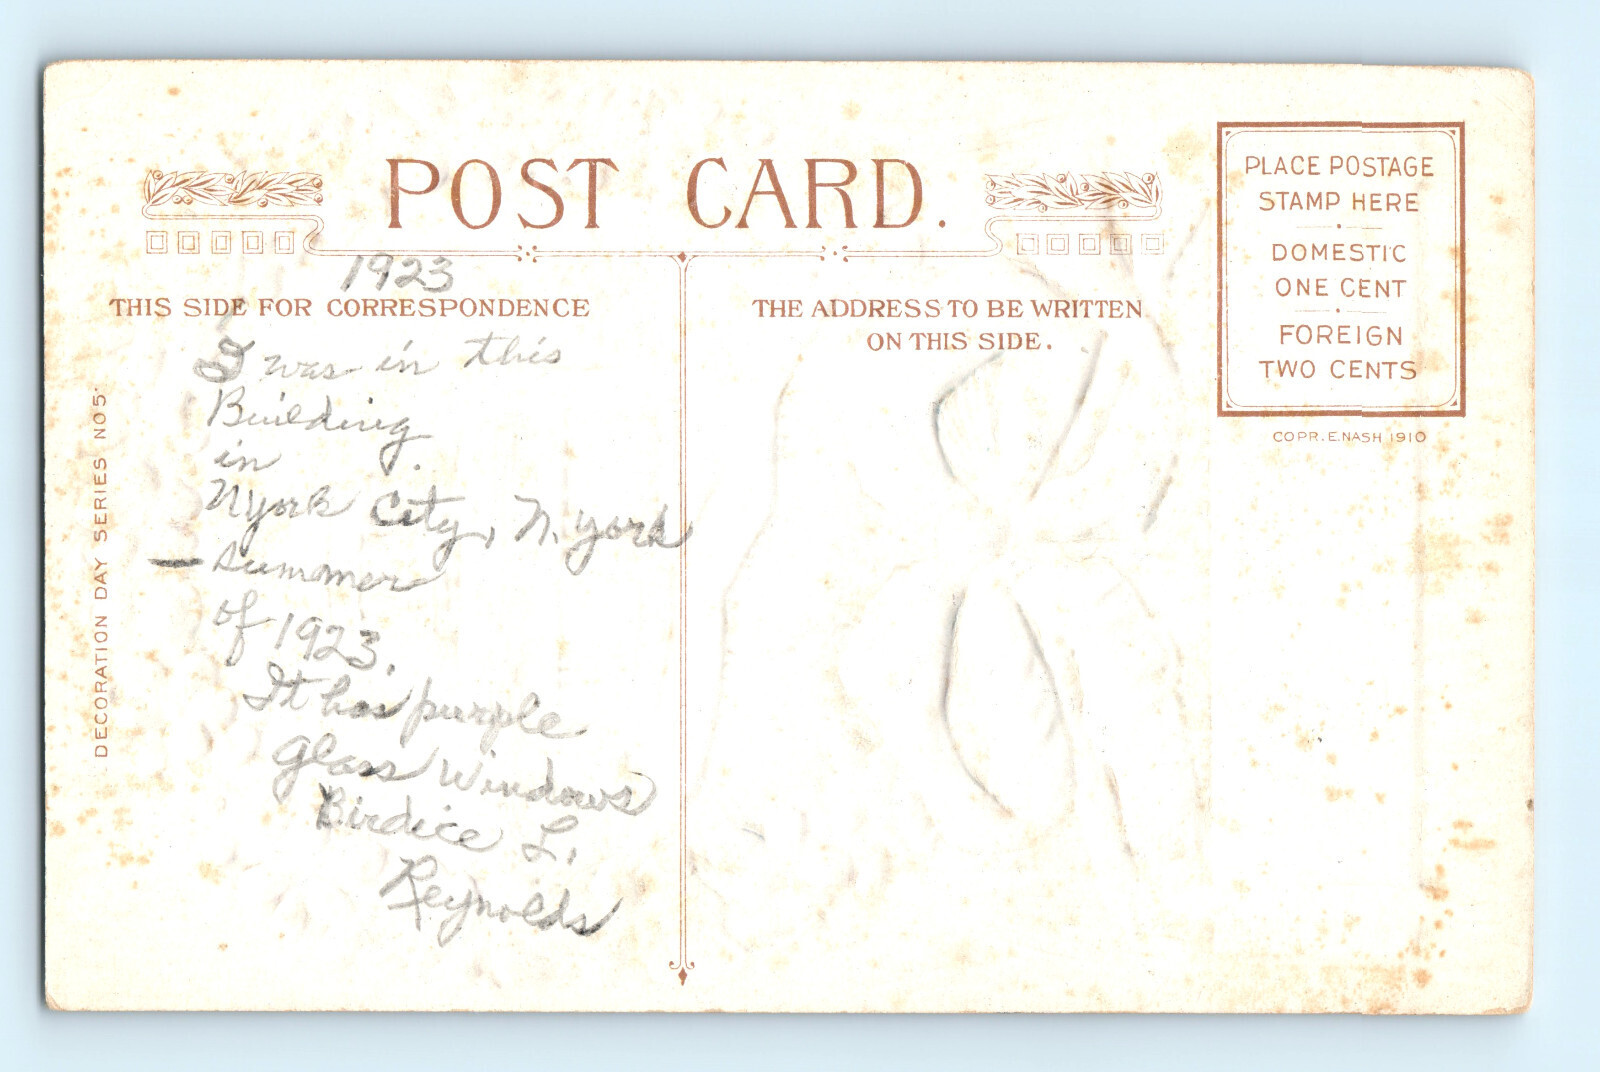 POST CARD.
1923
THIS SIDE FOR CORRESPONDENCE
I was in this
Building
in.
N york City, N. york
— Summer
of 1923.
It has purple
glass windows
Birdice L.
Reynolds
THE ADDRESS TO BE WRITTEN
ON THIS SIDE.
PLACE POSTAGE
STAMP HERE
DOMESTIC
ONE CENT
FOREIGN
TWO CENTS
COPR. E. NASH 1910
DECORATION DAY SERIES NO 5